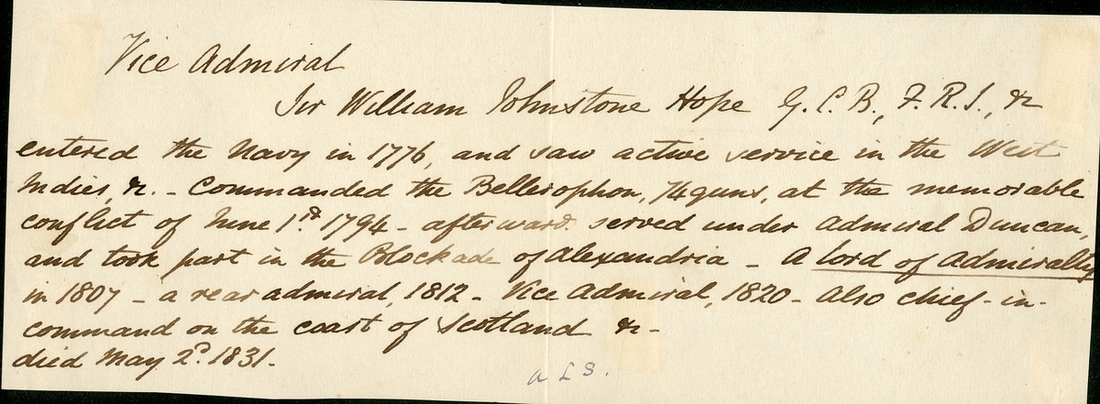 Vice Admiral
Sir William Johnstone Hope G.C.B., F.R.S., &c
entered the Navy in 1776, and saw active service in the West
Indies, &c. - Commanded the Bellerophon, 74 guns, at the memorable
conflict of June 1st 1794 - afterward served under Admiral Duncan,
and took part in the Blockade of Alexandria - A lord of Admiralty
in 1807 - a rear admiral, 1812 - Vice Admiral, 1820 - Also chief-in-
command on the coast of Scotland &c -
died May 2d. 1831.
A L S.